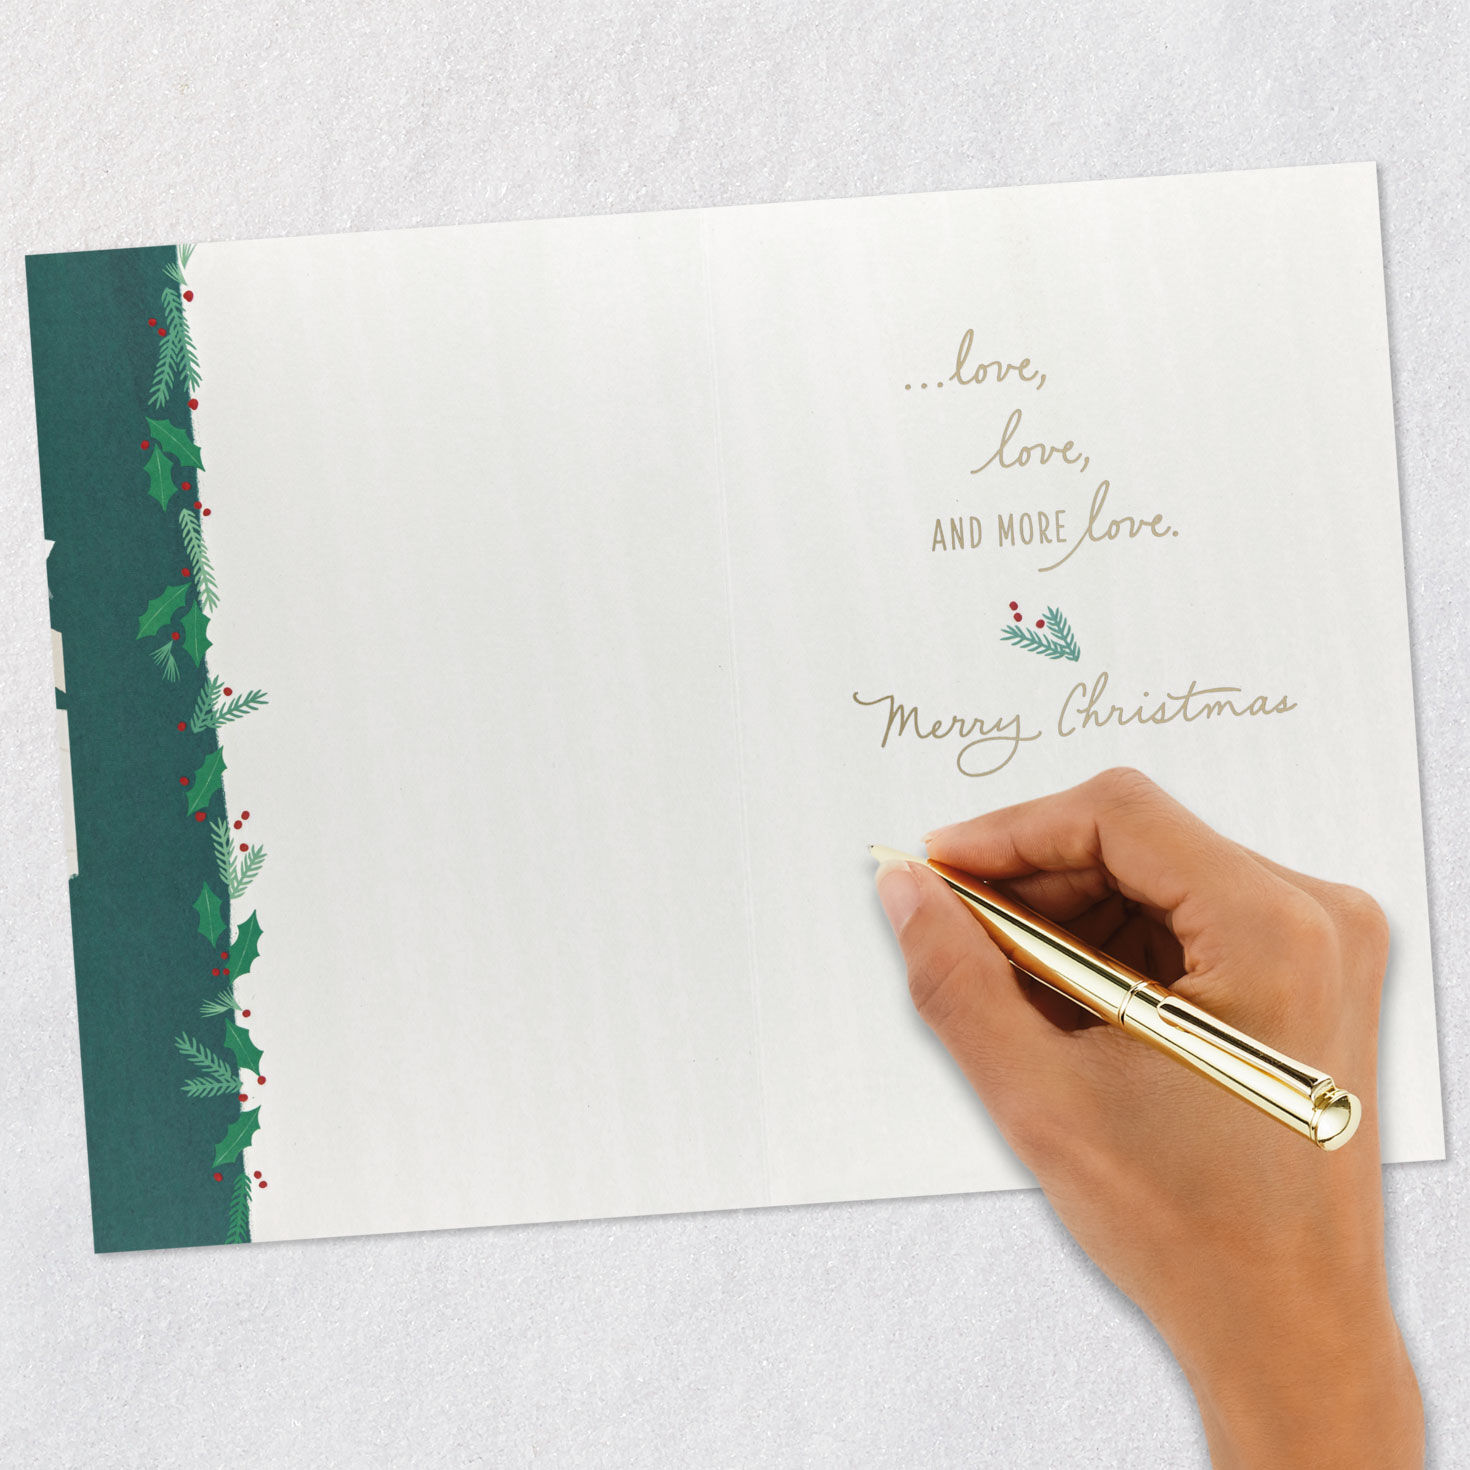 ...love,
love,
AND MORE love.
Merry Christmas